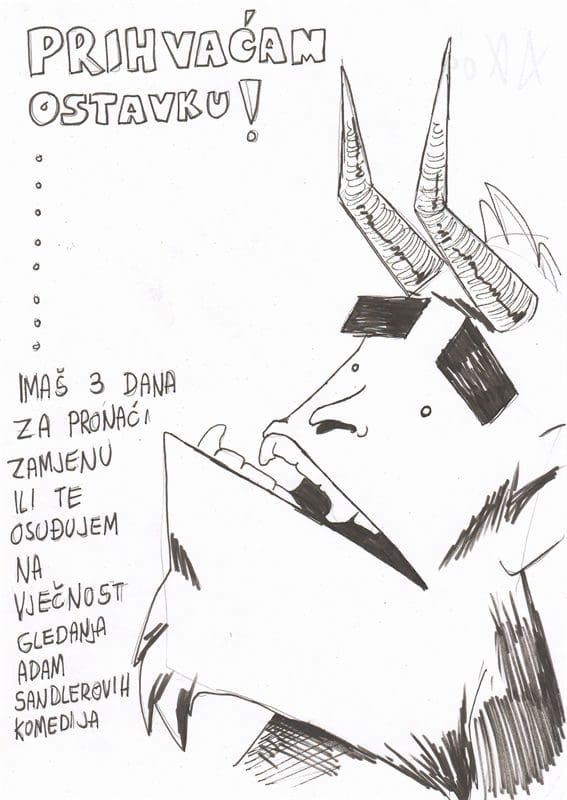 PRIHVAĆAM
OSTAVKU!
IMAŠ 3 DANA
ZA PRONAĆI
ZAMJENU
ILI TE
OSUĐUJEM
NA
VJEČNOST
GLEDANJA
ADAM
SANDLEROVIH
KOMEDIJA